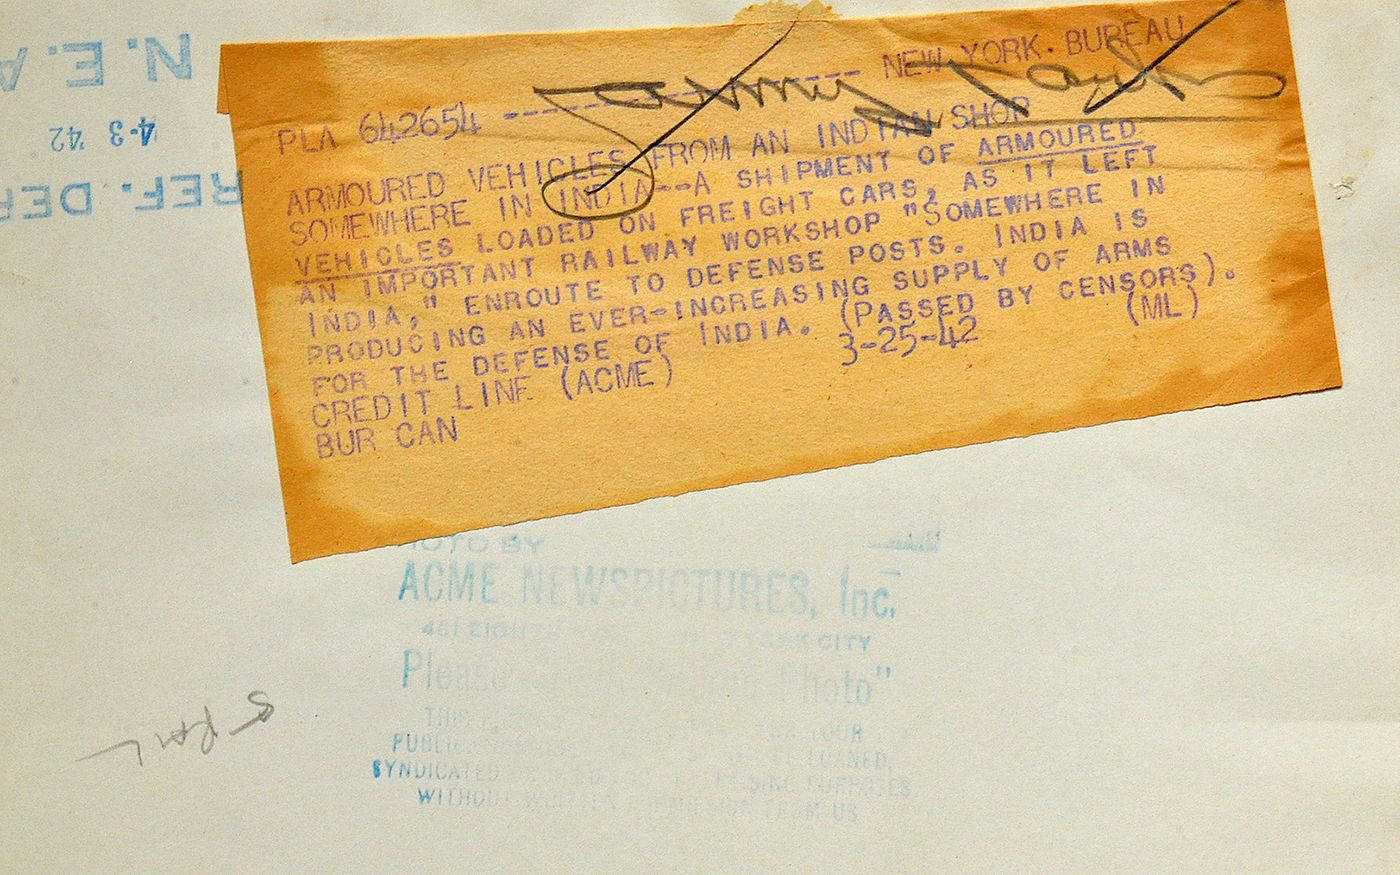 PLA 642654 ---------------- NEW YORK BUREAU
ARMOURED VEHICLES FROM AN INDIAN SHOP
SOMEWHERE IN INDIA--A SHIPMENT OF ARMOURED
VEHICLES LOADED ON FREIGHT CARS, AS IT LEFT
AN IMPORTANT RAILWAY WORKSHOP "SOMEWHERE IN
INDIA," ENROUTE TO DEFENSE POSTS. INDIA IS
PRODUCING AN EVER-INCREASING SUPPLY OF ARMS
FOR THE DEFENSE OF INDIA. (PASSED BY CENSORS).
CREDIT LINE (ACME) 3-25-42 (ML)
BUR CAN
N. E. A
4-3 42
REF. DEP
OTO BY
ACME NEWSPICTURES, Inc.
461 EIGHTH CITY
Please Photo"
THIS YOUR
LOANED,
SYNDICATED PURPOSES
WITHOUT FROM US